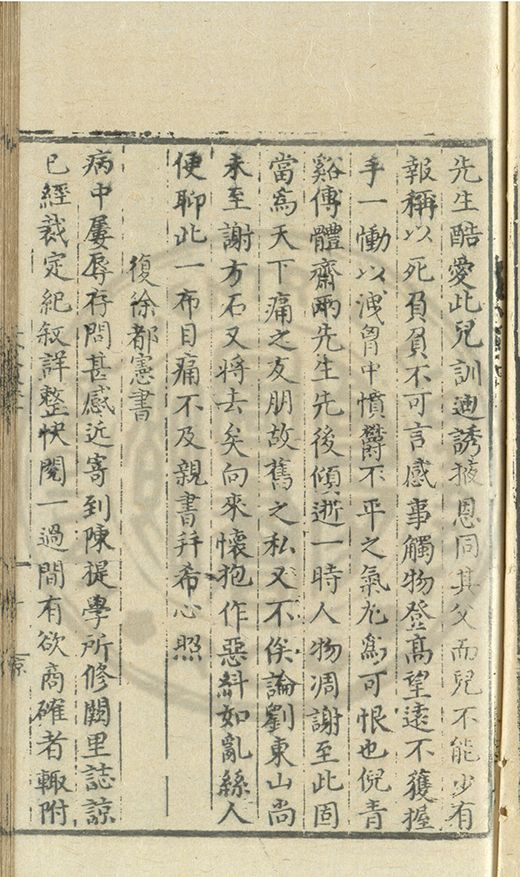 先生酷愛此兒訓迪誘掖恩同其父而兒不能少有
報稱以死負負不可言感事觸物登髙望逺不獲握
手一慟以洩胷中憤欝不平之氣尤為可恨也倪青
谿傅體齋兩先生先後傾逝一時人物凋謝至此固
當為天下痛之友朋故舊之私又不俟論劉東山尚
未至謝方石又将去矣向來懷抱作惡紏如亂絲人
便聊此一布目痛不及親書拜希心照
復徐都憲書
病中屢辱存問甚感近寄到陳提學所修闕里誌諒
已經裁定紀叙詳整快閲一過間有欲商確者輙附